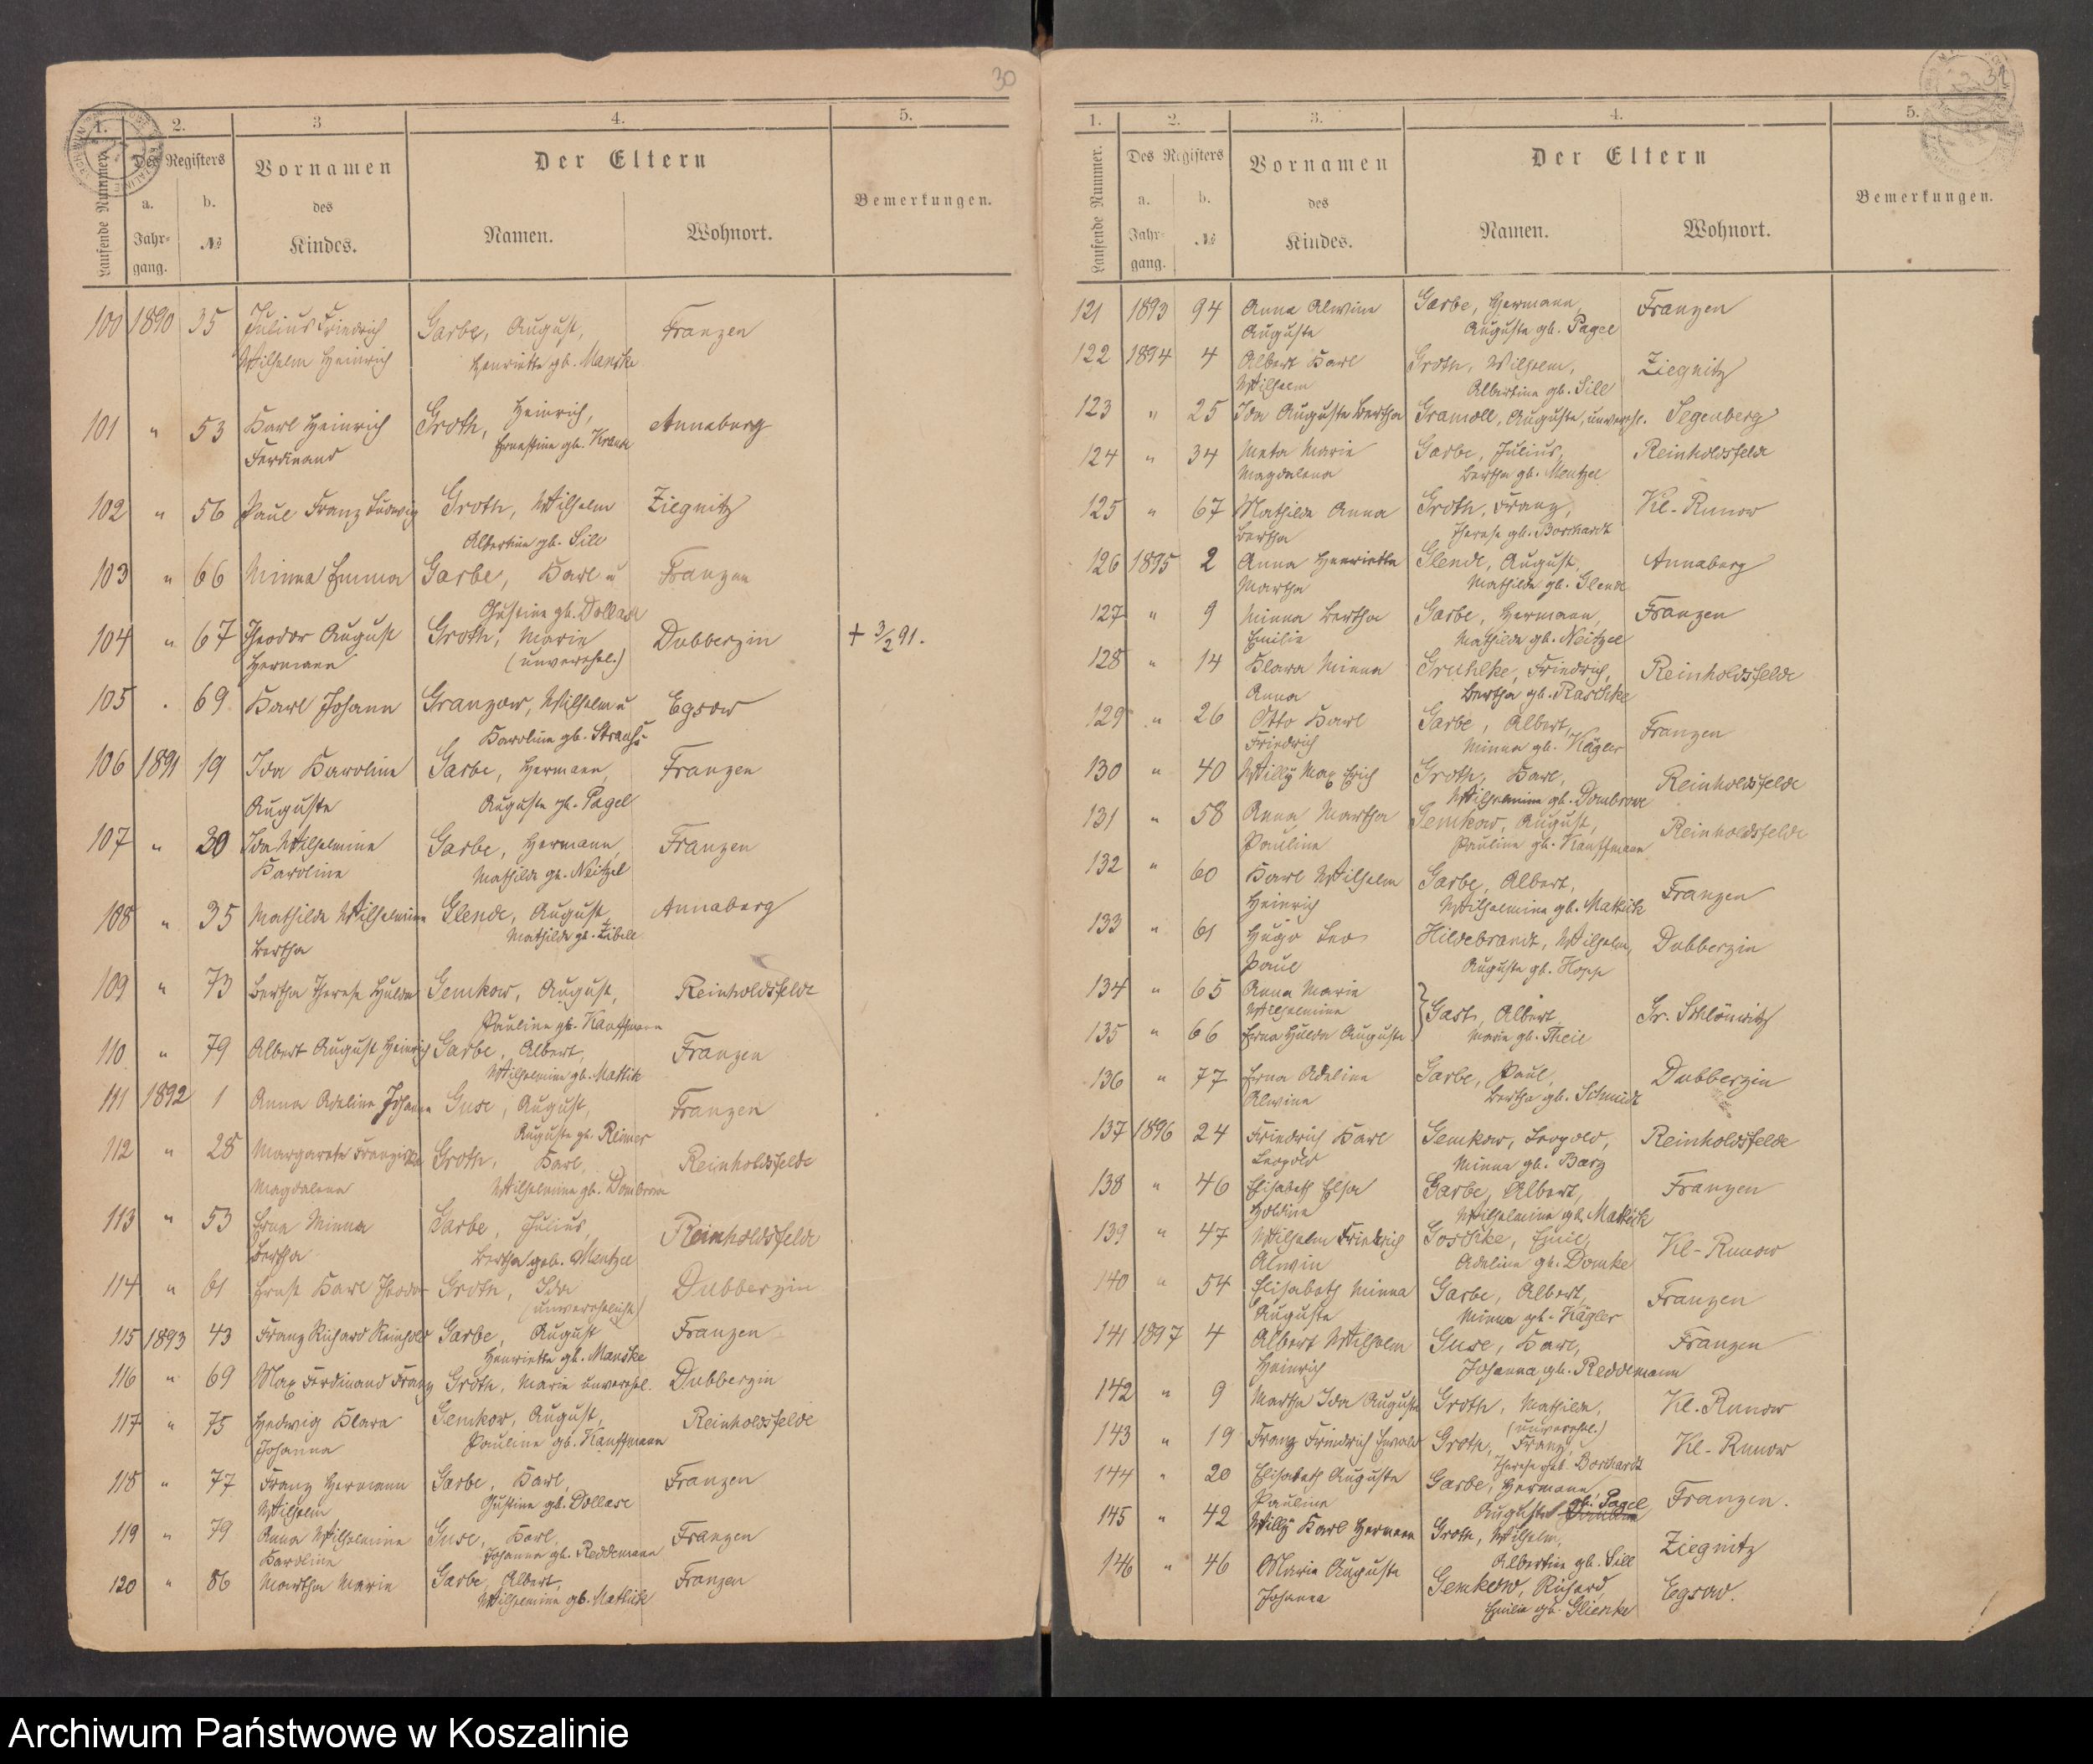 30
1. 2. 3 4. 5.
Laufende Nummer.
Des Registers
a. Jahrgang.
b. №
Vornamen
des
Kindes.
Der Eltern
Namen. Wohnort.
Bemerkungen.
100 1890 35 Julius Friedrich Garbe, August, Franzen
Wilhelm Heinrich Henriette gb. Manske
101 " 53 Karl Heinrich Groth, Heinrich, Annaberg
Ferdinand Ernestine gb. Krause
102 " 56 Paul Franz Ludwig Groth, Wilhelm Ziegnitz
Albertine gb. Sill
103 " 66 Minna Emma Garbe, Karl u Franzen
Justine gb. Dollase
104 " 67 Theodor August Groth, Marie Dubberzin + 3/2 91.
Hermann (unverehel.)
105 " 69 Karl Johann Granzow, Wilhelm u Egsow
Karoline gb.
106 1891 19 Ida Karoline Garbe, Hermann, Franzen
Auguste Auguste gb. Pagel
107 " 30 Ida Wilhelmine Garbe, Hermann, Franzen
Karoline Mathilde gb. Neitzel
108 " 35 Mathilde Wilhelmine Glende, August, Annaberg
Bertha Mathilde gb. Zibell
109 " 73 Bertha Therese Hulda Gemkow, August, Reinholdsfelde
Pauline gb. Kauffmann
110 " 79 Albert August Heinrich Garbe, Albert, Franzen
Wilhelmine gb. Mattik
111 1892 1 Anna Adeline Johanne Guse, August, Franzen
Auguste gb. Reimer
112 " 28 Margarete Franziska Groth, Karl, Reinholdsfelde
Magdalena Wilhelmine gb. Dombrowe
113 " 53 Erna Minna Garbe, Julius, Reinholdsfelde
Bertha Bertha geb. Mentzel
114 " 61 Ernst Karl Theodor Groth, Ida Dubberzin
(unverehelicht)
115 1893 43 Franz Richard Reinhold Garbe, August Franzen
Henriette gb. Manske
116 " 69 Max Ferdinand Franz Groth, Marie unverehel. Dubberzin
117 " 75 Hedwig Klara Gemkow, August, Reinholdsfelde
Johanna Pauline gb. Kauffmann
118 " 77 Franz Hermann Garbe, Karl, Franzen
Wilhelm Justine gb. Dollase
119 " 79 Anna Wilhelmine Guse, Karl, Franzen
Karoline Johanna gb. Reddemann
120 " 86 Martha Marie Garbe, Albert, Franzen
Wilhelmine gb. Mattick
31
1. 2. 3. 4. 5.
Laufende Nummer.
Des Registers
a. Jahrgang.
b. №
Vornamen
des
Kindes.
Der Eltern
Namen. Wohnort.
Bemerkungen.
121 1893 94 Anna Alwine Garbe, Hermann, Franzen
Auguste Auguste gb. Pagel
122 1894 4 Albert Karl Groth, Wilhelm, Ziegnitz
Wilhelm Albertine gb. Sill
123 " 25 Ida Auguste Bertha Gramoll, Auguste, unverehe. Segenberg
124 " 34 Meta Marie Garbe, Julius, Reinholdsfelde
Magdalena Bertha gb. Mentzel
125 " 67 Mathilde Anna Groth, Franz, Kl.-Runow
Bertha Therese gb. Borchardt
126 1895 2 Anna Henriette Glende, August, Annaberg
Martha Mathilde gb. Glende
127 " 9 Minna Bertha Garbe, Hermann, Franzen
Emilie Mathilde gb. Neitzel
128 " 14 Klara Minna Gruhlke, Friedrich, Reinholdsfelde
Anna Bertha gb. Raschke
129 " 26 Otto Karl Garbe, Albert, Franzen
Friedrich Minna gb. Kägler
130 " 40 Willy Max Erich Groth, Karl, Reinholdsfelde
Wilhelmine gb. Dombrowe
131 " 58 Anna Martha Gemkow, August, Reinholdsfelde
Pauline Pauline gb. Kauffmann
132 " 60 Karl Wilhelm Garbe, Albert, Franzen
Heinrich Wilhelmine gb. Mattick
133 " 61 Hugo Leo Hildebrandt, Wilhelm, Dubberzin
Paul Auguste gb. Hopp
134 " 65 Anna Marie
Wilhelmine } Gast, Albert Gr. Schlönwitz
135 " 66 Erna Hulda Auguste Marie gb. Theil
136 " 77 Erna Adeline Garbe, Paul, Dubberzin
Alwine Bertha gb. Schmidt
137 1896 24 Friedrich Karl Gemkow, Leopold, Reinholdsfelde
Leopold Minna gb. Barz
138 " 46 Elisabeth Elsa Garbe, Albert, Franzen
Wilhelmine gb. Mattick
139 " 47 Wilhelm Friedrich Goschke, Emil, Kl-Runow
Alwin Adeline gb. Domke
140 " 54 Elisabeth Minna Garbe, Albert, Franzen
Auguste Minna gb. Kägler
141 1897 4 Albert Wilhelm Guse, Karl, Franzen
Heinrich Johanna gb. Reddemann
142 " 9 Martha Ida Auguste Groth, Mathilde, Kl.-Runow
(unverehel.)
143 " 19 Franz Friedrich Ewald Groth, Franz, Kl-Runow
Therese geb. Borchardt
144 " 20 Elisabeth Auguste Garbe, Hermann, Franzen.
Pauline Auguste gb. Pagel
145 " 42 Willy Karl Hermann Groth, Wilhelm, Ziegnitz
Albertine gb. Sill
146 " 46 Marie Auguste Gemkow, Richard, Egsow.
Johanna Emilie gb. Glienke
Archiwum Państwowe w Koszalinie